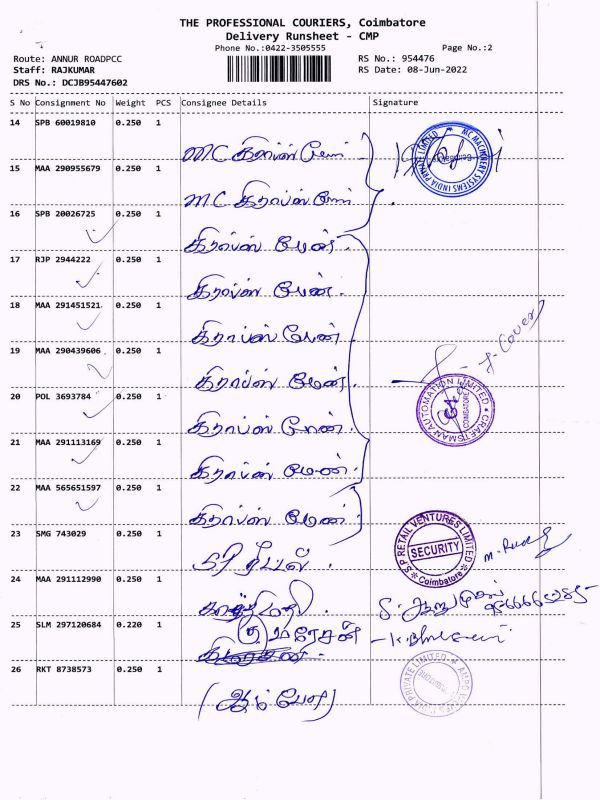 THE PROFESSIONAL COURIERS, Coimbatore
Delivery Runsheet - CMP
Phone No.:0422-3505555
Page No.:2
Route: ANNUR ROADPCC
RS No.: 954476
Staff: RAJKUMAR
RS Date: 08-Jun-2022
DRS No.: DCJB95447602
S No Consignment No Weight PCS Consignee Details Signature
14 SPB 60019810 0.250 1
MC கிராப்ஸ் மேன்
MC MACHINERY SYSTEMS INDIA PRIVATE LIMITED
15 MAA 290955679 0.250 1
MC கிராப்ஸ் மேன்
16 SPB 20026725 0.250 1
கிராப்ஸ் மேன்
17 RJP 2944222 0.250 1
கிராப்ஸ் மேன்
18 MAA 291451521 0.250 1
கிராப்ஸ் மேன்
19 MAA 290439606 0.250 1
கிராப்ஸ் மேன்
Cover
20 POL 3693784 0.250 1
கிராப்ஸ் மேன்
CRAFTSMAN AUTOMATION LIMITED
COIMBATORE
21 MAA 291113169 0.250 1
கிராப்ஸ் மேன்
22 MAA 565651597 0.250 1
கிராப்ஸ் மேன்
23 SMG 743029 0.250 1
SP ரீடடல்
S.P RETAIL VENTURES LIMITED
SECURITY
Coimbatore
24 MAA 291112990 0.250 1
25 SLM 297120684 0.220 1
26 RKT 8738573 0.250 1
PRIVATE LIMITED